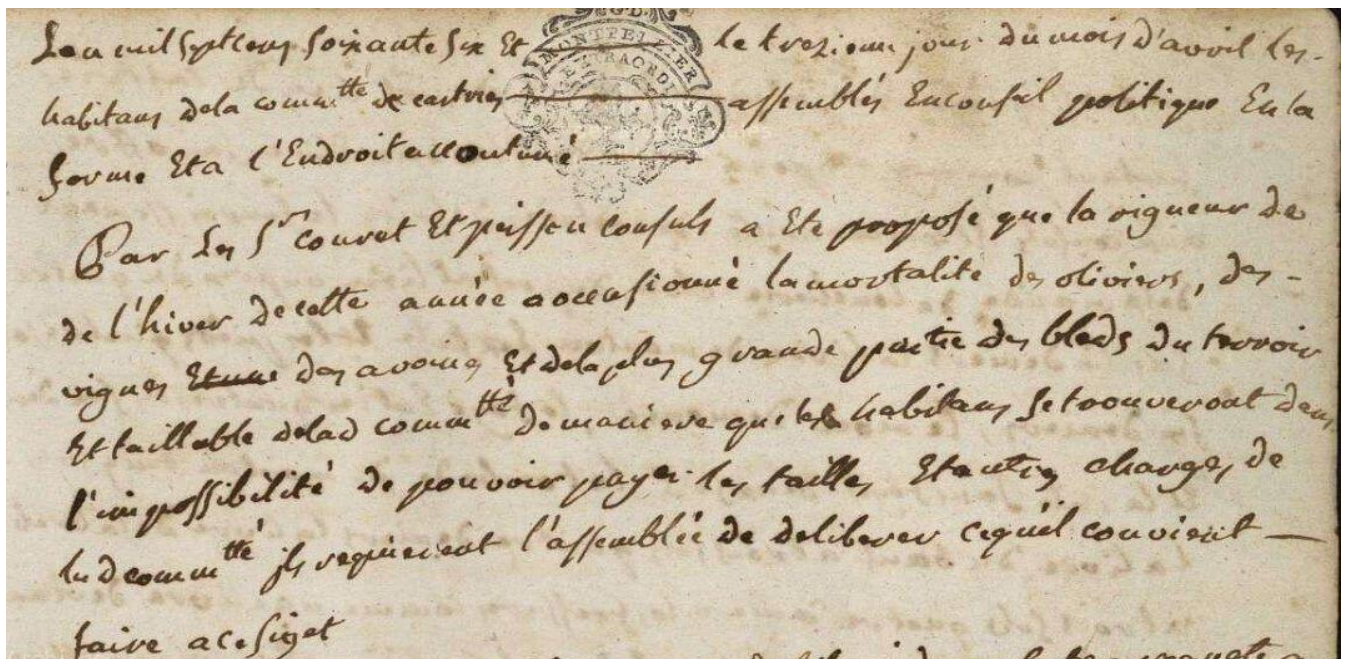 Lan mil sept cens soixante six Et le trezieme jour du mois d'avril les
habitans dela comm^tté de castries assemblés Enconseil politique En la
forme Et a l'Endroit accoutumé
G.D.
MONTPELLIER
EXTRAORDI
Par Les S^rs couret Et peisson consuls a Eté proposé que la rigueur de
de l'hiver decette année a occasionné la mortalité des oliviers, des
vignes des avoines Et dela plus grande partie des bleds du terroir
Et taillable delad comm^tté de maniere que les habitans se trouveront dans
l'impossibilité de pouvoir payer les tailles Et autres charges de
lad comm^tté ils requierent l'assemblée de deliberer cequil convient
faire a ce sujet